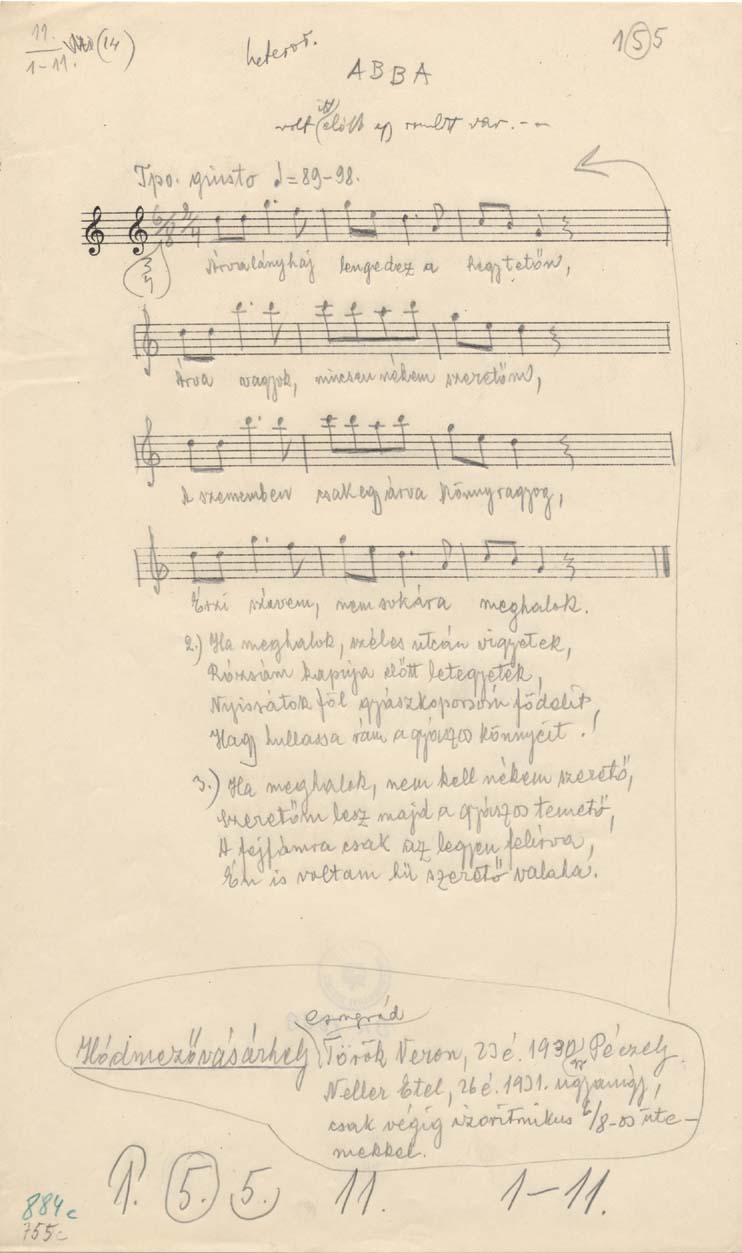 11.
1-11. (14)
heteror.
1(5)5
ABBA
itt
volt (előtt egy rontott var. --
Tpo. giusto ♩=89-98.
6/8 3/4
Árvalányhaj lengedez a hegytetőn,
Árva vagyok, nincsen nékem szeretőm,
A szememben csak egy árva könny ragyog,
Érzi szívem, nem sokára meghalok.
2.) Ha meghalok, széles utcán vigyetek,
Rózsám kapuja előtt letegyetek,
Nyissátok föl gyászkoporsóm födelit,
Hagy hullassa rám a gyászos könnyeit.!
3.) Ha meghalok, nem kell nékem szerető,
Szeretőm lesz majd a gyászos temető,
A fejfámra csak az legyen felírva,
Én is voltam hű szerető valaha.
Csongrád
Hódmezővásárhely, Török Veron, 23 é. 1930 Péczely.
Neller Etel, 26 é. 1931. ugyanígy,
csak végig izoritmikus 6/8-os üte-
mekkel.
1. (5.) 5. 11. 1-11.
884c
755c